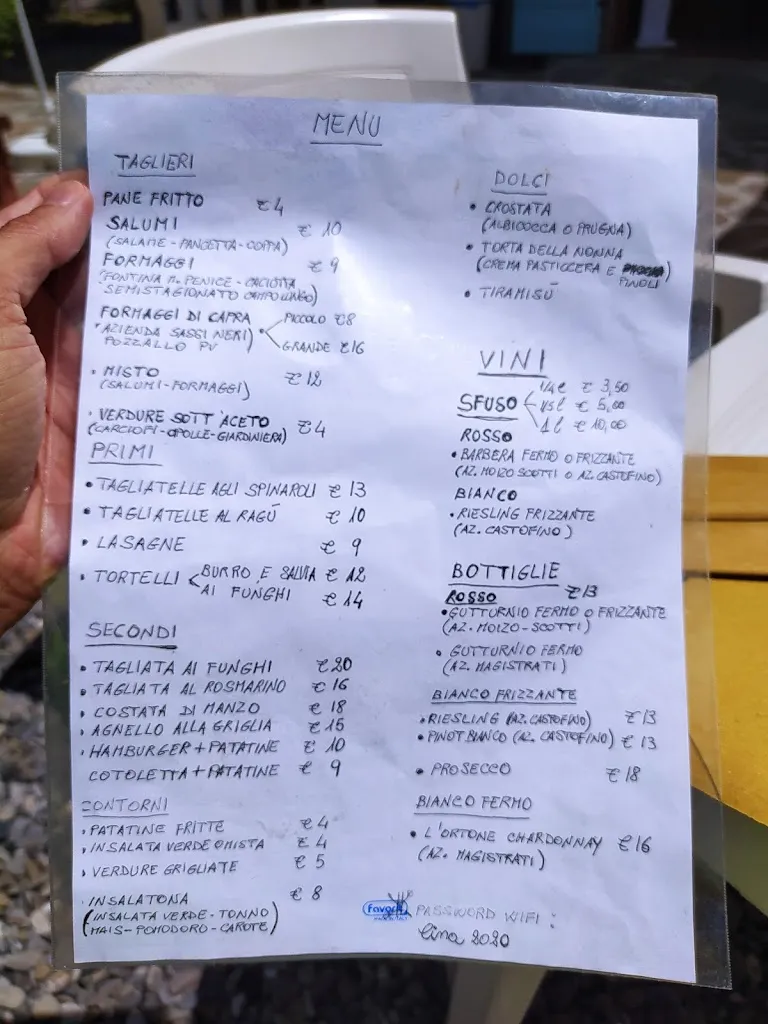 MENU
TAGLIERI
PANE FRITTO € 4
SALUMI € 10
(SALAME - PANCETTA - COPPA)
FORMAGGI € 9
(FONTINA M. PENICE - CACIOTTA
SEMISTAGIONATO CAMPOLUNGO)
FORMAGGI DI CAPRA PICCOLO €8
AZIENDA SASSI NERI) GRANDE €16
POZZALLO PV
• MISTO € 12
(SALUMI - FORMAGGI)
• VERDURE SOTT'ACETO € 4
(CARCIOFI - CIPOLLE - GIARDINIERA)
PRIMI
• TAGLIATELLE AGLI SPINAROLI € 13
• TAGLIATELLE AL RAGÚ € 10
• LASAGNE € 9
• TORTELLI BURRO E SALVIA € 12
AI FUNGHI € 14
SECONDI
• TAGLIATA AI FUNGHI €20
• TAGLIATA AL ROSMARINO € 16
• COSTATA DI MANZO € 18
• AGNELLO ALLA GRIGLIA € 15
• HAMBURGER + PATATINE € 10
COTOLETTA + PATATINE € 9
CONTORNI
• PATATINE FRITTE € 4
• INSALATA VERDE O MISTA € 4
• VERDURE GRIGLIATE € 5
• INSALATONA € 8
(INSALATA VERDE - TONNO
MAIS - POMODORO - CAROTE)
DOLCI
• CROSTATA
(ALBICOCCA O PRUGNA)
• TORTA DELLA NONNA
(CREMA PASTICCERA E PINOLI)
• TIRAMISÚ
VINI
SFUSO 1/4 l € 3,50
1/2 l € 5,00
1 l € 10,00
ROSSO
• BARBERA FERMO O FRIZZANTE
(AZ. MOIZO SCOTTI O AZ. CASTOFINO)
BIANCO
• RIESLING FRIZZANTE
(AZ. CASTOFINO)
BOTTIGLIE
ROSSO €13
• GUTTURNIO FERMO O FRIZZANTE
(AZ. MOIZO - SCOTTI)
• GUTTURNIO FERMO
(AZ. MAGISTRATI)
BIANCO FRIZZANTE
• RIESLING (AZ. CASTOFINO) €13
• PINOT BIANCO (AZ. CASTOFINO) € 13
• PROSECCO € 18
BIANCO FERMO
• L'ORTONE CHARDONNAY €16
(AZ. MAGISTRATI)
Favorit
PASSWORD WIFI :
lina 2020